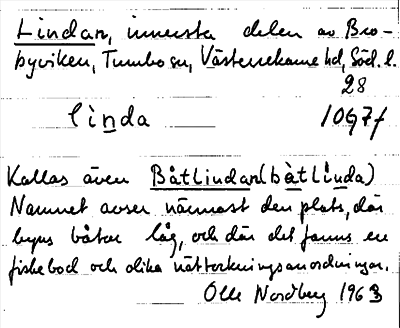 Lindan, innersta delen av Bro-
byviken, Tumbo sn, Västerrekarne hd, Söd. l.
28
lìnda 1097f
Kallas även Båtlindan (bàtlìnda)
Namnet avser närmast den plats, där
byns båtar låg, och där det fanns en
fiskebod och olika nättorkningsanordningar.
Olle Nordberg 1963